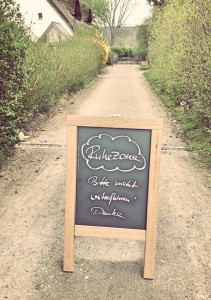 Ruhezone
Bitte nicht
weiterfahren!
Danke